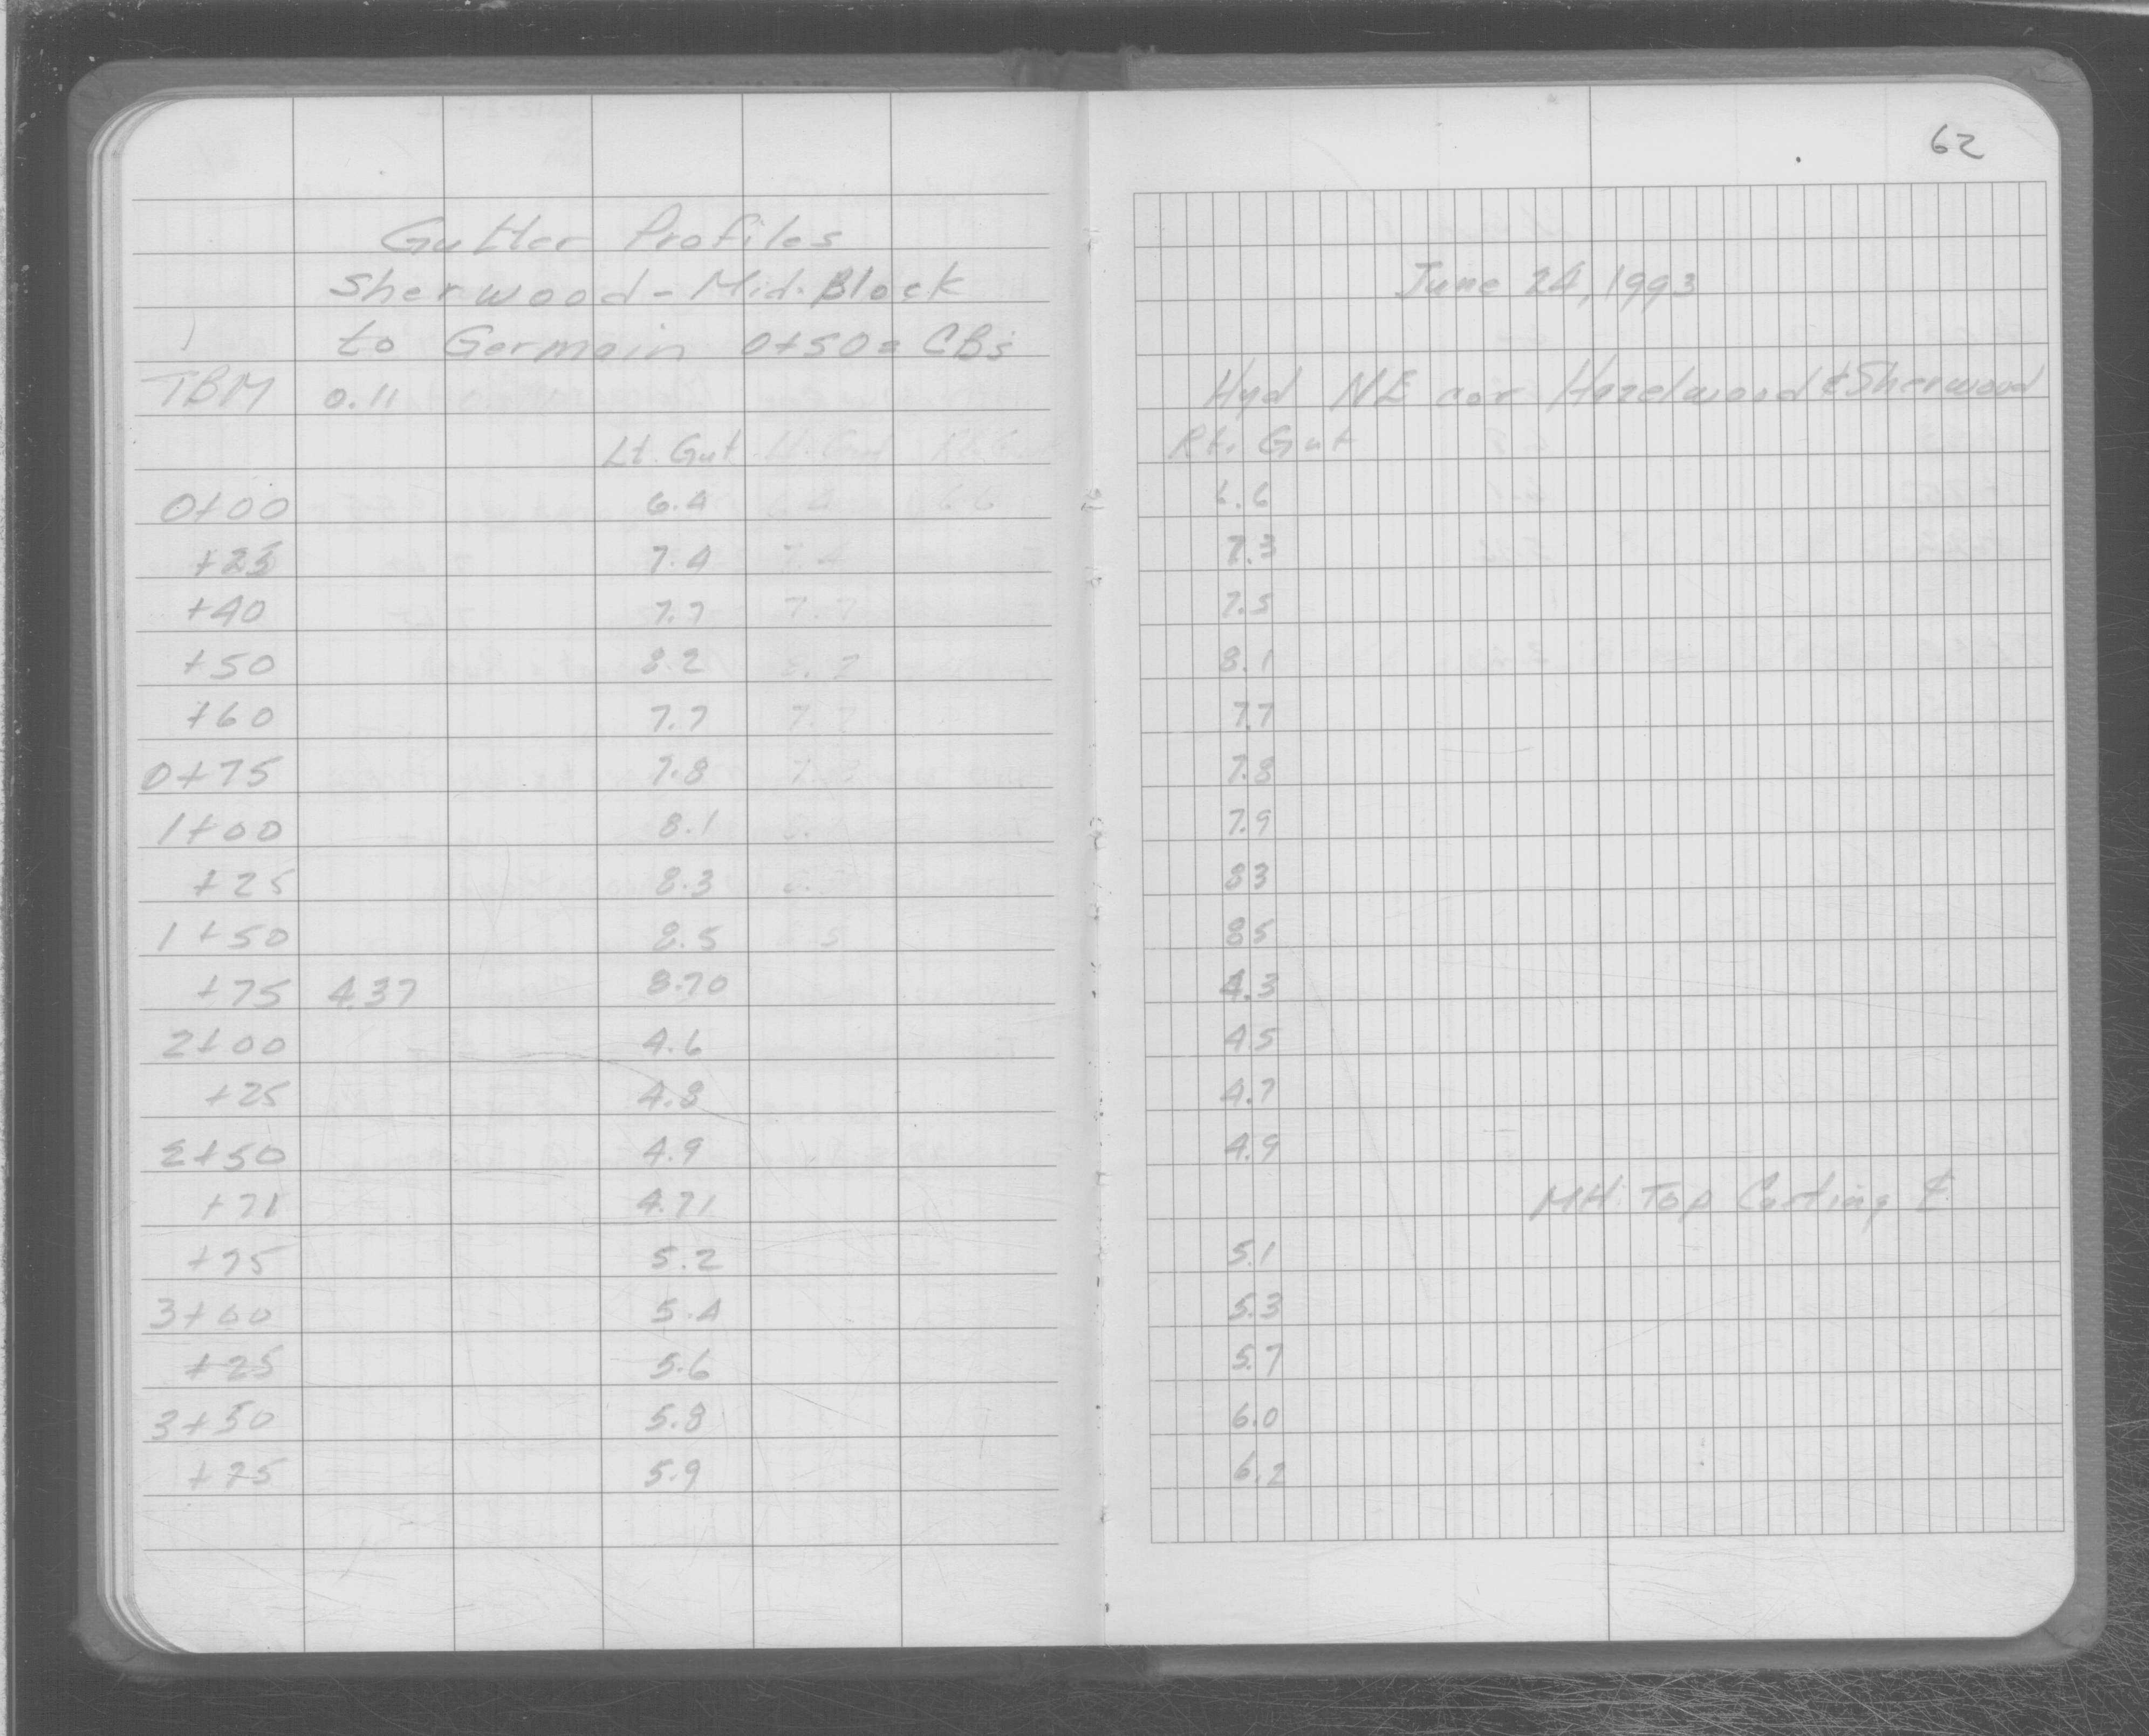 62
Gutter Profiles
Sherwood - Mid. Block
June 24, 1993
to Germain 0+50 = CB's
TBM 0.11 Hyd NE cor Hazelwood & Sherwood
Lt. Gut Rt. Gut
0+00 6.4 6.6
+25 7.4 7.3
+40 7.7 7.5
+50 8.2 8.1
+60 7.7 7.7
0+75 7.8 7.8
1+00 8.1 7.9
+25 8.3 8.3
1+50 8.5 8.5
+75 4.37 8.70 4.3
2+00 4.6 4.5
+25 4.8 4.7
2+50 4.9 4.9
+71 4.71 MH. Top Casting ₵
+75 5.2 5.1
3+00 5.4 5.3
+25 5.6 5.7
3+50 5.8 6.0
+75 5.9 6.2